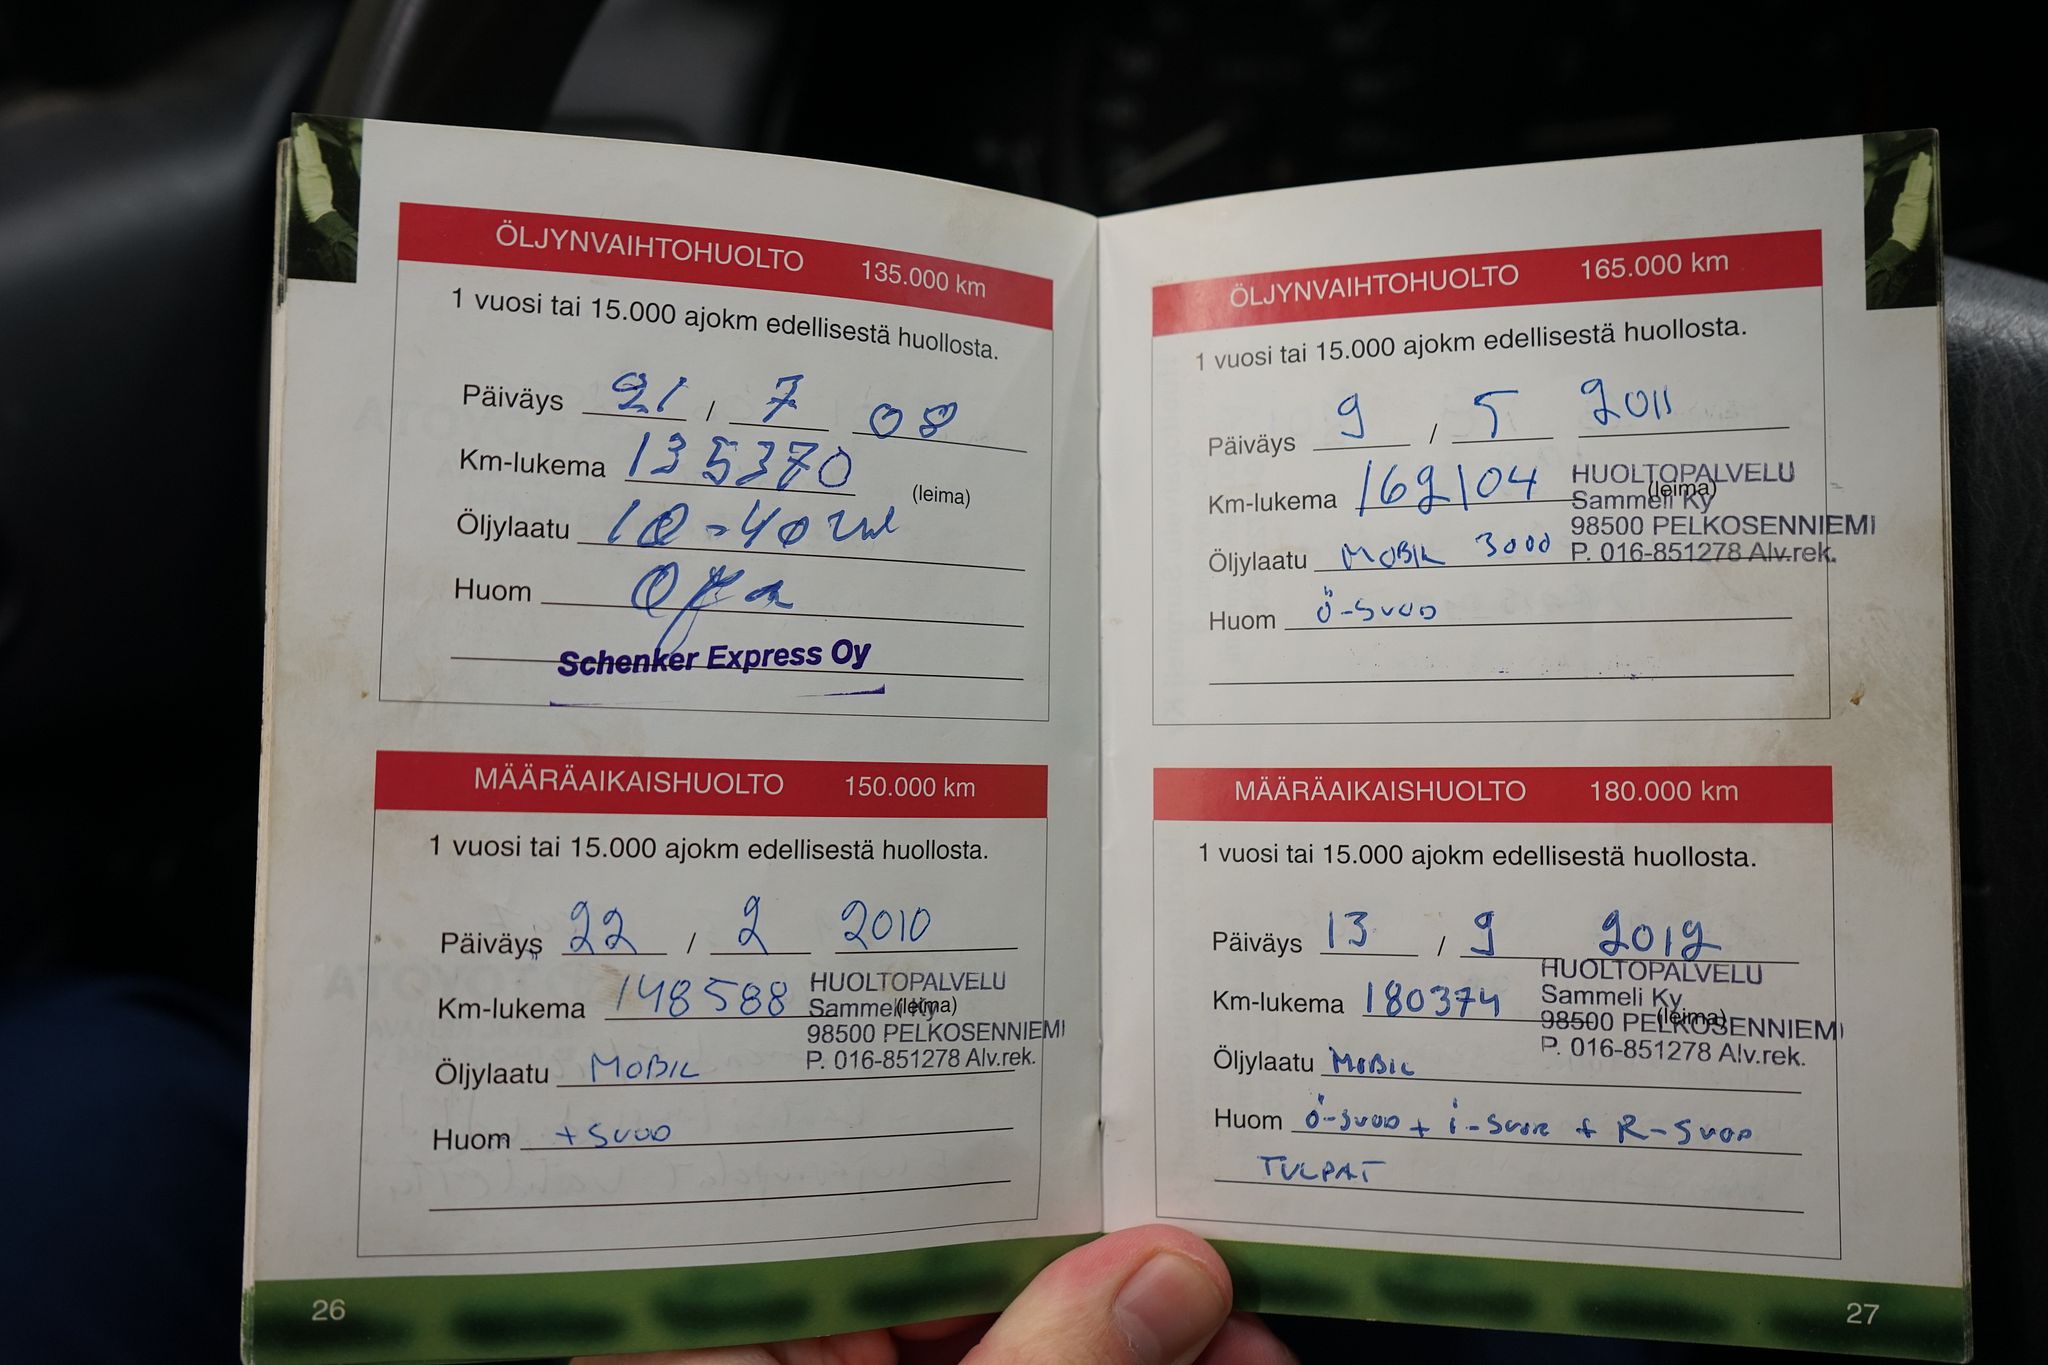 ÖLJYNVAIHTOHUOLTO 135.000 km
1 vuosi tai 15.000 ajokm edellisestä huollosta.
Päiväys 21 / 7 08
Km-lukema 135370
(leima)
Öljylaatu 10-40
Huom
Schenker Express Oy
MÄÄRÄAIKAISHUOLTO 150.000 km
1 vuosi tai 15.000 ajokm edellisestä huollosta.
Päiväys 22 / 2 2010
Km-lukema 148588 (leima)
HUOLTOPALVELU
Sammeli Ky
98500 PELKOSENNIEMI
P. 016-851278 Alv.rek.
Öljylaatu MOBIL
Huom + SUOD
26
ÖLJYNVAIHTOHUOLTO 165.000 km
1 vuosi tai 15.000 ajokm edellisestä huollosta.
Päiväys 9 / 5 2011
Km-lukema 162104 (leima)
HUOLTOPALVELU
Sammeli Ky
98500 PELKOSENNIEMI
P. 016-851278 Alv.rek.
Öljylaatu MOBIL 3000
Huom Ö-SUOD
MÄÄRÄAIKAISHUOLTO 180.000 km
1 vuosi tai 15.000 ajokm edellisestä huollosta.
Päiväys 13 / 9 2012
Km-lukema 180374 (leima)
HUOLTOPALVELU
Sammeli Ky
98500 PELKOSENNIEMI
P. 016-851278 Alv.rek.
Öljylaatu MOBIL
Huom Ö-SUOD + i-SUOD + R-SUOD
TULPAT
27